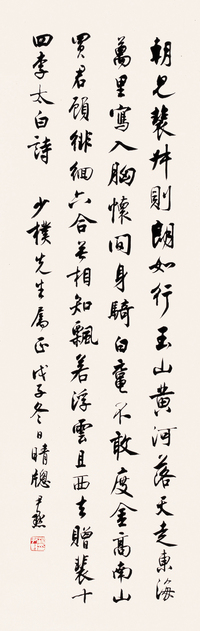 朝見裴叔則朗如行玉山黃河落天走東海
萬里寫入胸懷間身騎白黿不敢度金高南山
買君顧徘徊六合無相知飄若浮雲且西去贈裴十
四李太白詩 少樸先生屬正戊子冬日晴窗尹默